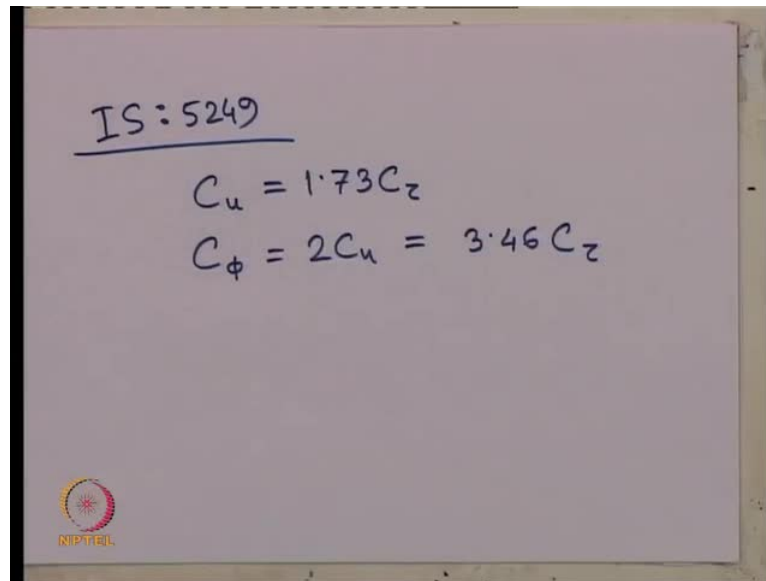 IS:5249
Cu = 1.73Cτ
Cφ = 2Cu = 3.46Cτ
NPTEL